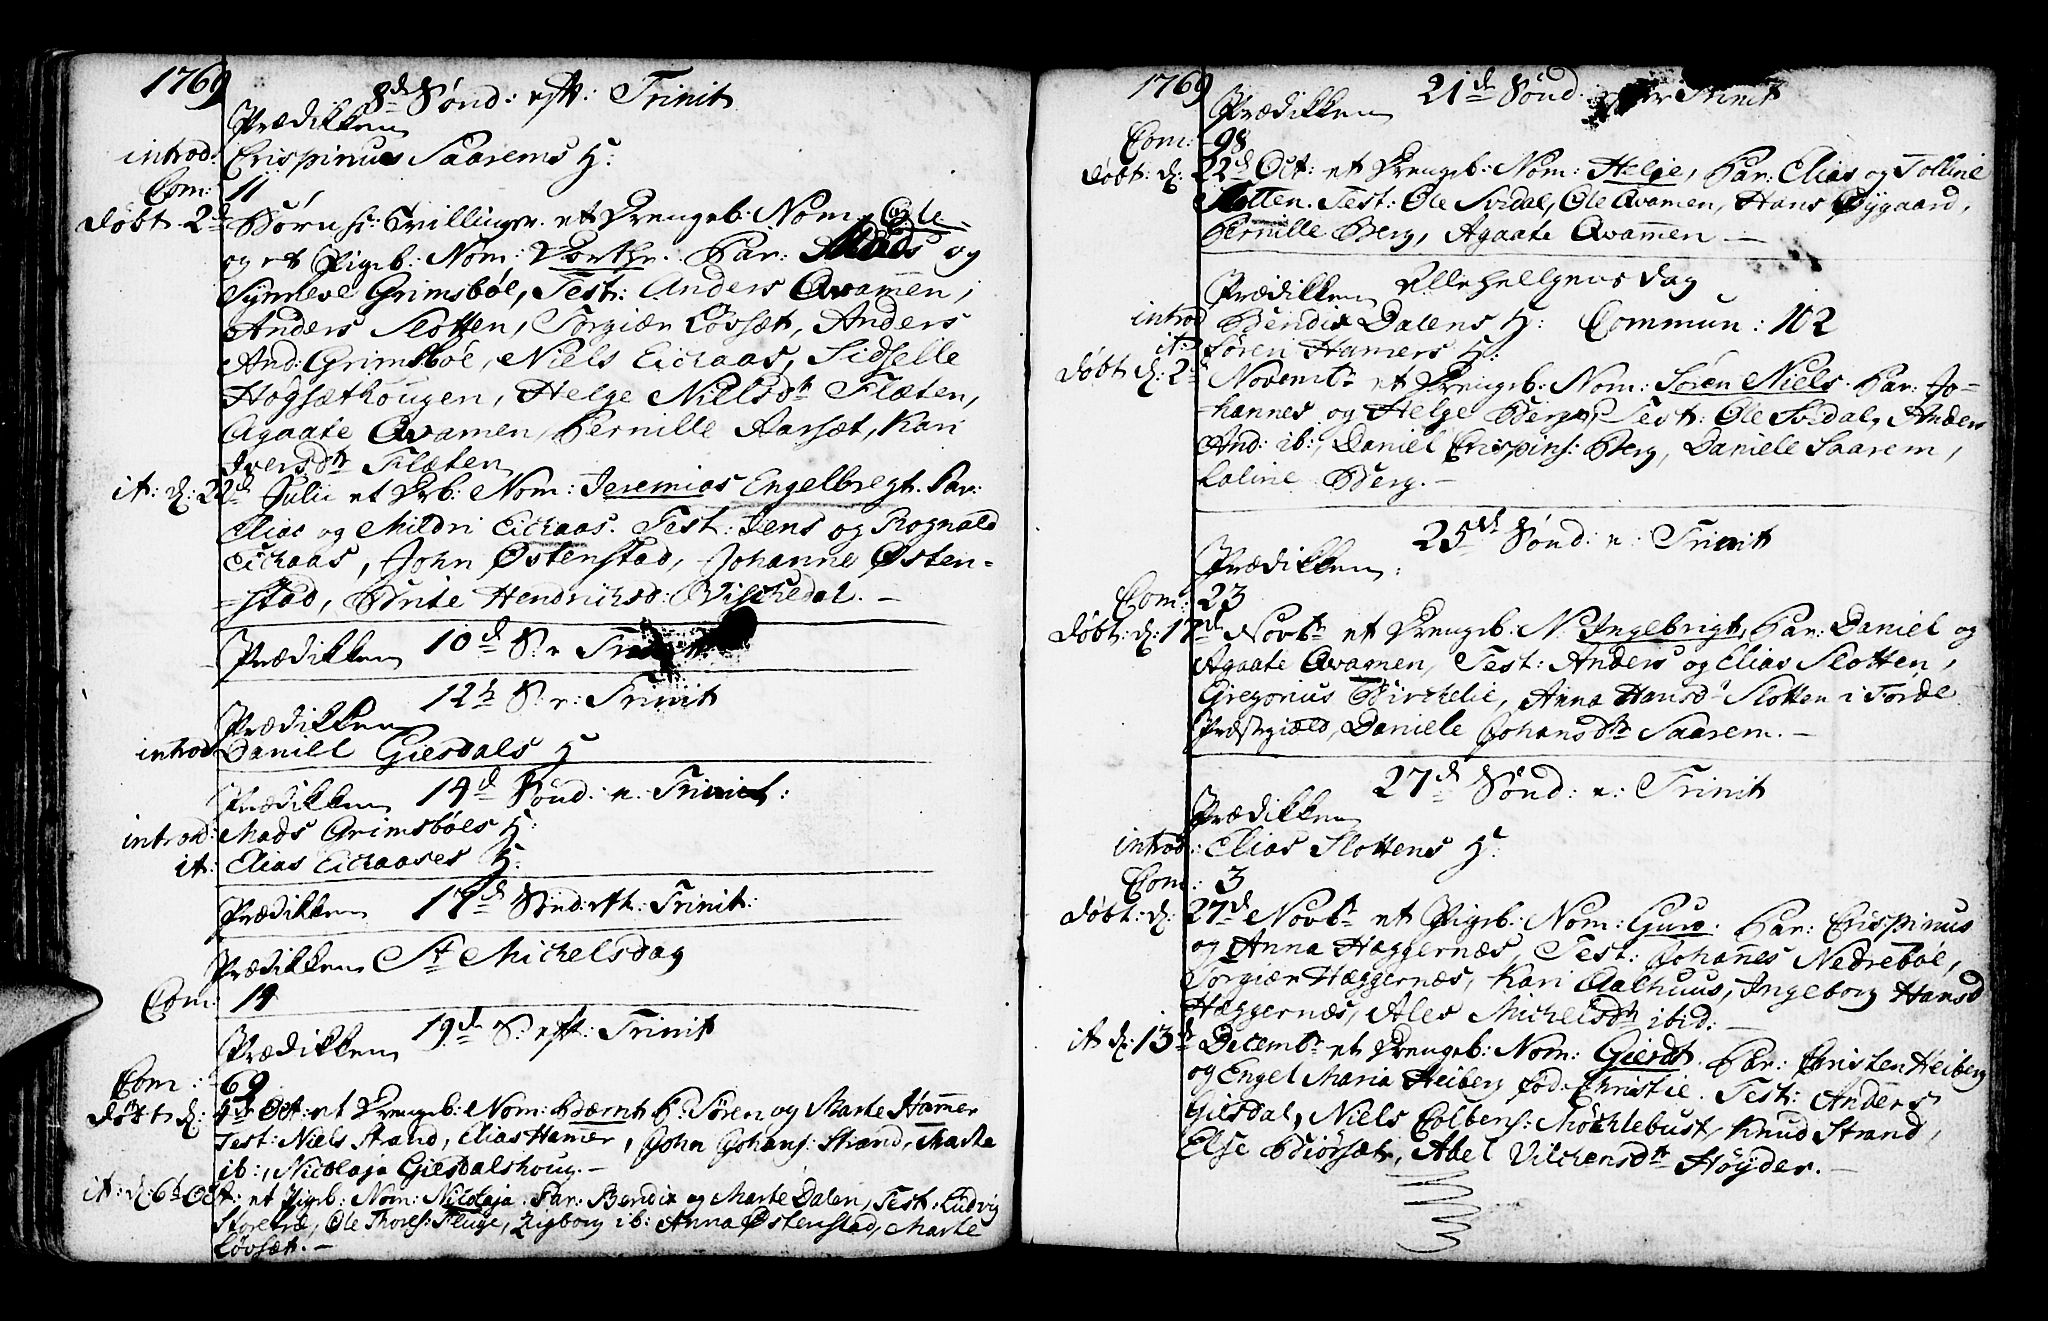 1769
8de Sønd: eft: Trinit
Prædikken
introd: Crispinus Saarems H:
Com: 11
døbt 2de Børn sc: Tvillinger. et Drengeb: Nom: Ole
og et Pigeb: Nom: Dorthe. Par: Mads og
Synneve Grimsbøe, Test: Anders Qvamen,
Anders Slotten, Torgiær Løvsæt, Anders
And: Grimsbøe, Niels Eichaas, Sidselle
Høgsæthougen, Helge Nielsdtr Flæten,
Agaate Qvamen, Pernille Aarsæt, Kari
Iversdtr Flæten
it: d: 22d Julii et Drb: Nom: Jeremias Engelbregt. Par:
Elias og Mildri Eichaas. Test: Jens og Rognald
Eichaas, John Østenstad, Johanne Østen=
=stad, Børite Hendrichsd: Vischedal. –
Prædikken 10de S: e Trinit:
12te S: e: Trinit
Prædikken
introd Daniel Giesdals H
Prædikken 14de Sønd: e: Trinit:
introd: Mads Grimsbøes H:
it: Elias Eichaases H:
Prædikken 17de Sønd: eft: Trinit:
Prædikken St Michelsdag
Com: 14
19de S: eft: Trinit
Prædikken
Com: 69
døbt d: 4de Oct: et Drengeb: Nom: Bærnt P: Søren og Marte Hammer
Test: Niels Strand, Elias Hamer, John Johans: Strand, Marte
ib:, Nicolaja Giesdalshoug. –
it: d: 6te Oct: et Pigeb: Nom: Nicolaja. Par: Bendix og Marte Dalen, Test: Ludvig
Storetræ, Ole Thores: Fluge, Zigborg ib: Anna Østenstad, Marte
Løvsæt. –
1769
21de Sønd. efter Trinit
Prædikken
Com: 98
døbt: d: 22d Oct: et Drengeb: Nom: Helge, Par: Elias og Folline
Slotten. Test: Ole Svidal, Ole Qvamen, Hans Øygaard,
Pernille Berg, Agaate Qvammen –
Prædikken Allehelgens dag
introd Bendix Dalens H: Commun: 102
it: Søren Hamers H:
døbt d: 2d Novembr et Drengeb: Nom: Søren Niels. Par: Jo=
=hannes og Helge Berge, Test: Ole Svidal, Anders
And: ib:, Daniel Crispins: Berg, Daniele Saarem,
Laline Berg. –
25de Sønd: e: Trinit
Prædikken:
Com: 23
døbt: d: 17d Novbr et Drengeb: N: Ingebrigt, Par: Daniel og
Agaate Qvamen, Test: Anders og Elias Slotten,
Gregorius Birchelie, Anna Hansdr Slotten i Førde
Præstegiæld, Daniele Johansdtr Saarem. –
27de Sønd: e: Trinit
Prædikken
introd: Elias Slottens H:
Com: 3
døbt: d: 27d Novbr et Pigeb: Nom: Guro. Par: Crispinus
og Anna Hæggernæs, Test: Johannes Nedrebøe,
Torgiær Hæggernæs, Kari Aalhuus, Ingeborg Hansd
Hæggernæs, Ales Michelsdtr ibid: –
it d: 13de Decembr et Drengeb: Nom: Gierdt. Par: Christen Heiberg
og Engel Maria Heiberg fød Christie. Test: Anders
Giesdal, Niels Colbens: Møchlebust, Knud Strand,
Else Biørsæt, Abel Vilchensdtr Høyder. –